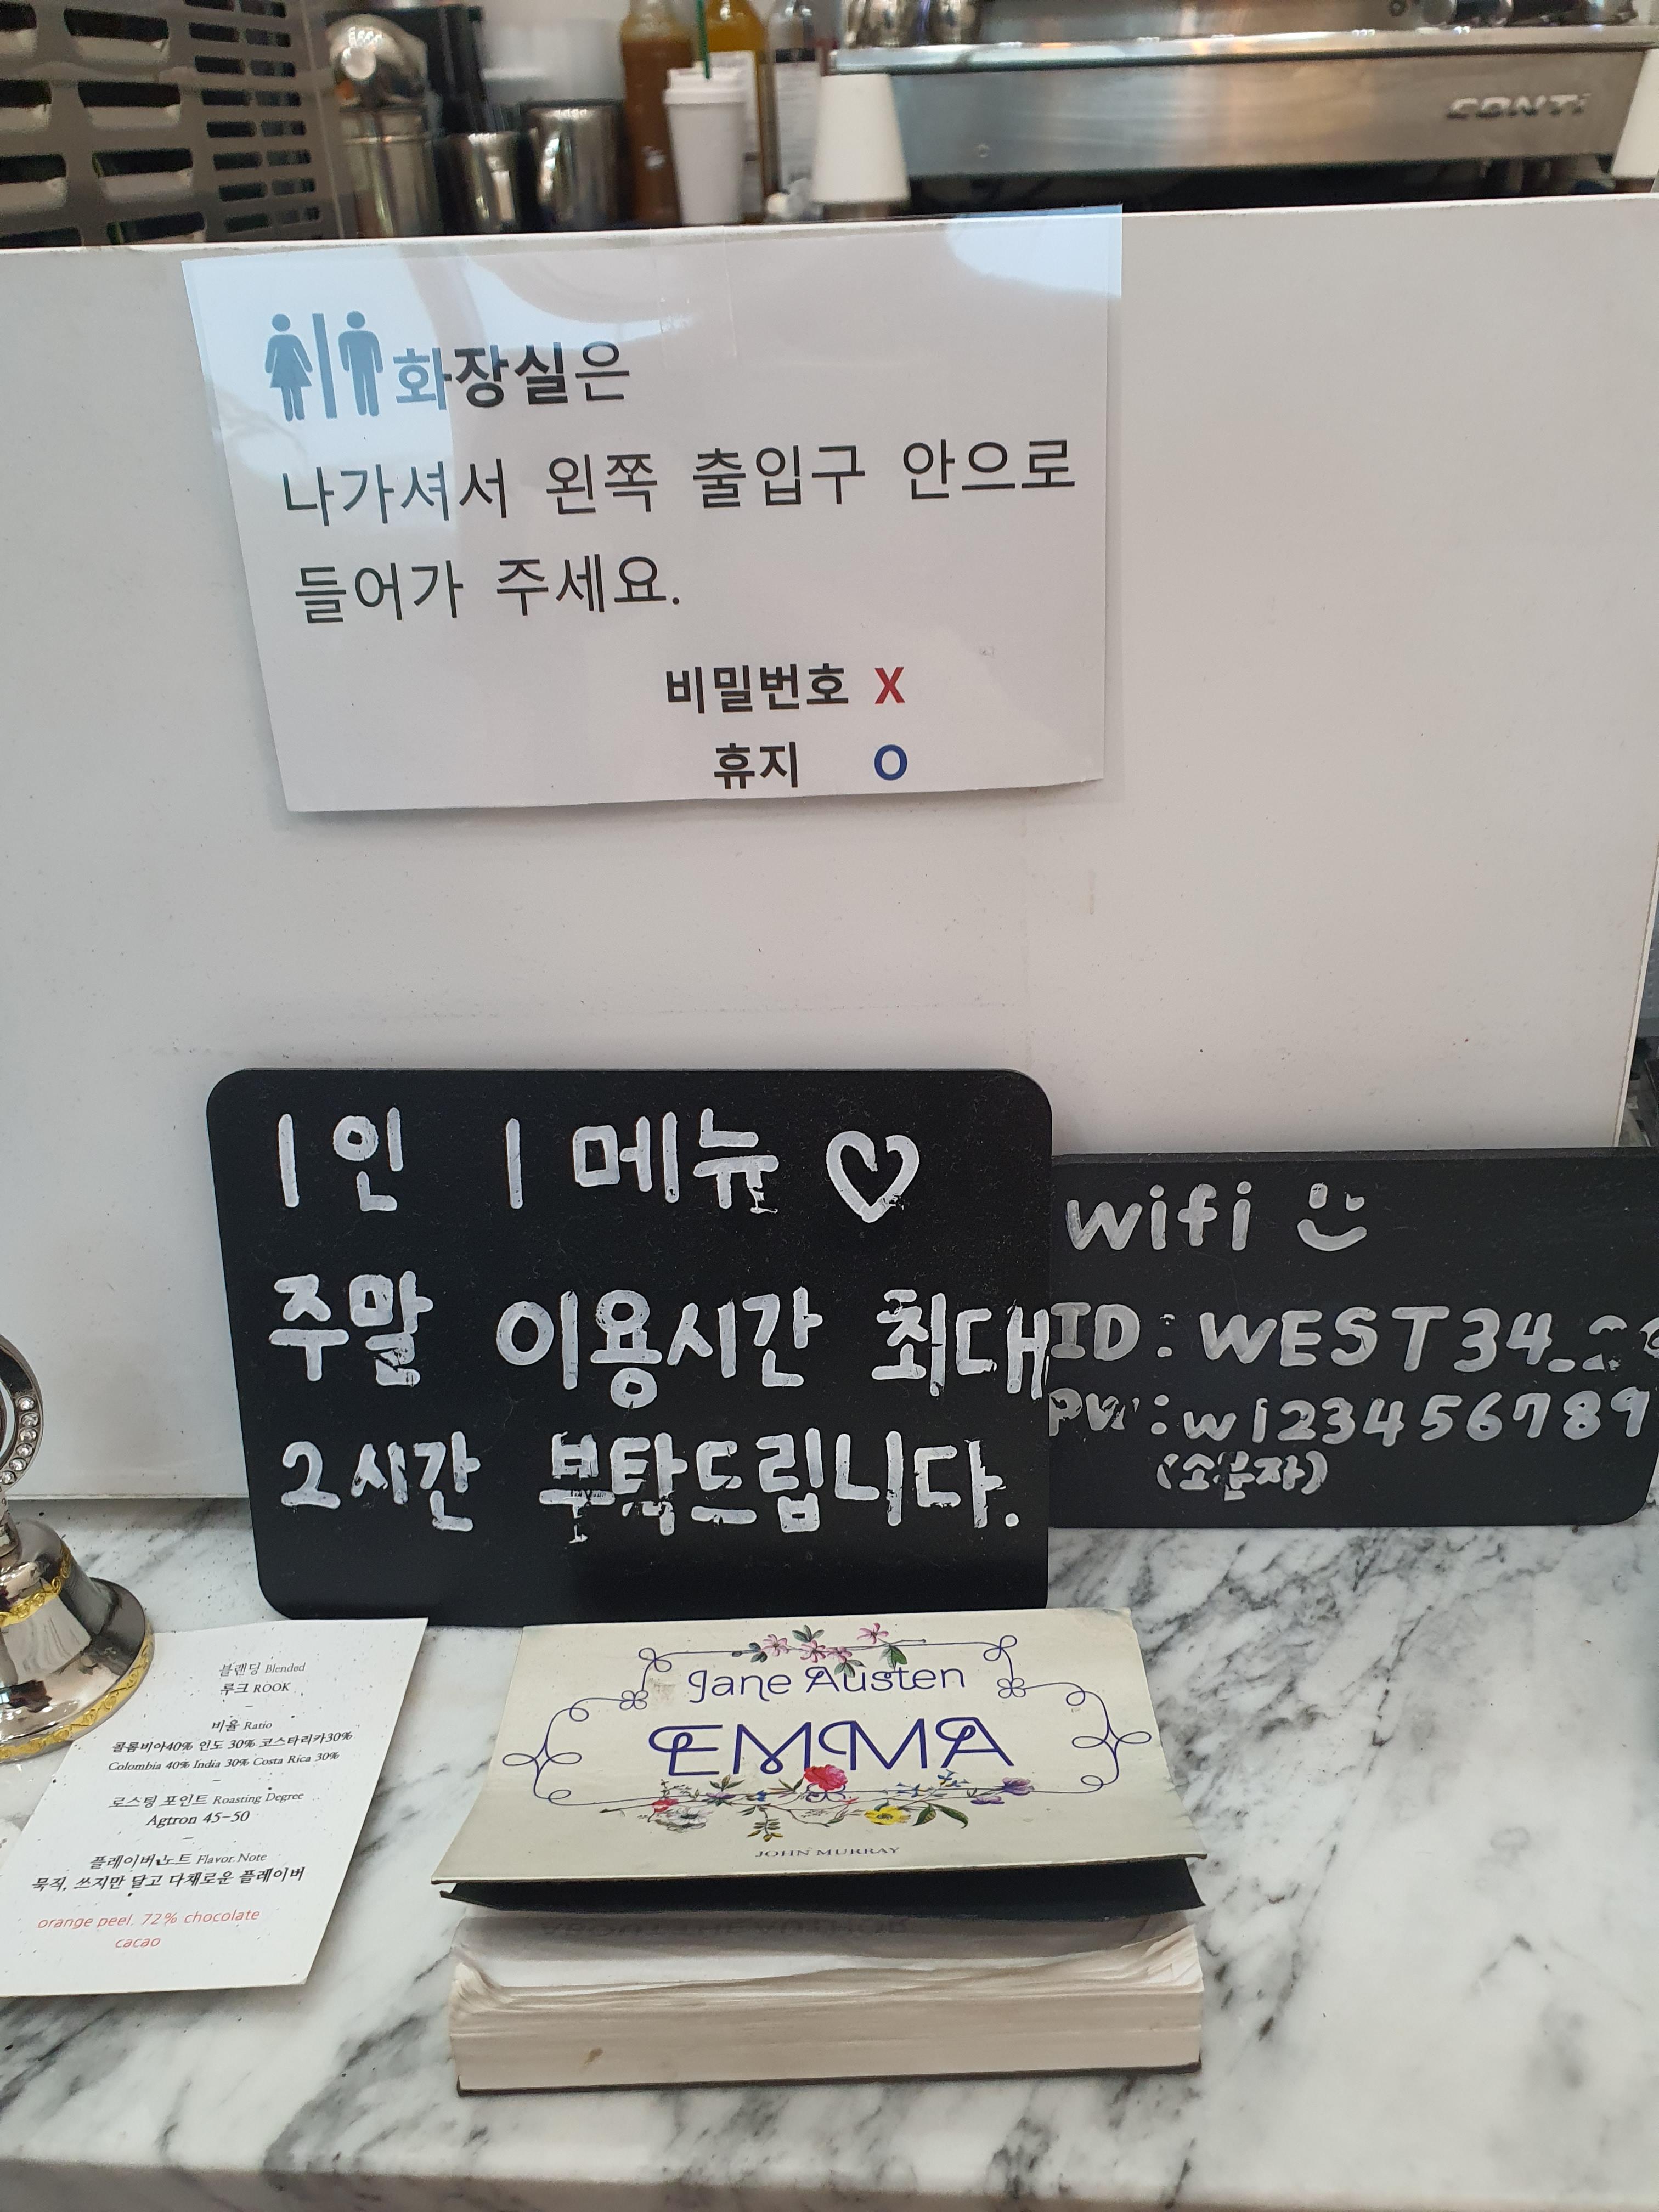 CONTI
화장실은
나가셔서 왼쪽 출입구 안으로
들어가 주세요.
비밀번호 X
휴지 O
1인 1메뉴 ♡
주말 이용시간 최대
2시간 부탁드립니다.
wifi
ID: WEST34_
PW: w123456789
(소문자)
블랜딩 Blended
루크 ROOK
비율 Ratio
콜롬비아40% 인도 30% 코스타리카30%
Colombia 40% India 30% Costa Rica 30%
로스팅 포인트 Roasting Degree
Agtron 45-50
플레이버 노트 Flavor Note
묵직, 쓰지만 달고 다채로운 플레이버
orange peel, 72% chocolate
cacao
Jane Austen
EMMA
JOHN MURRAY